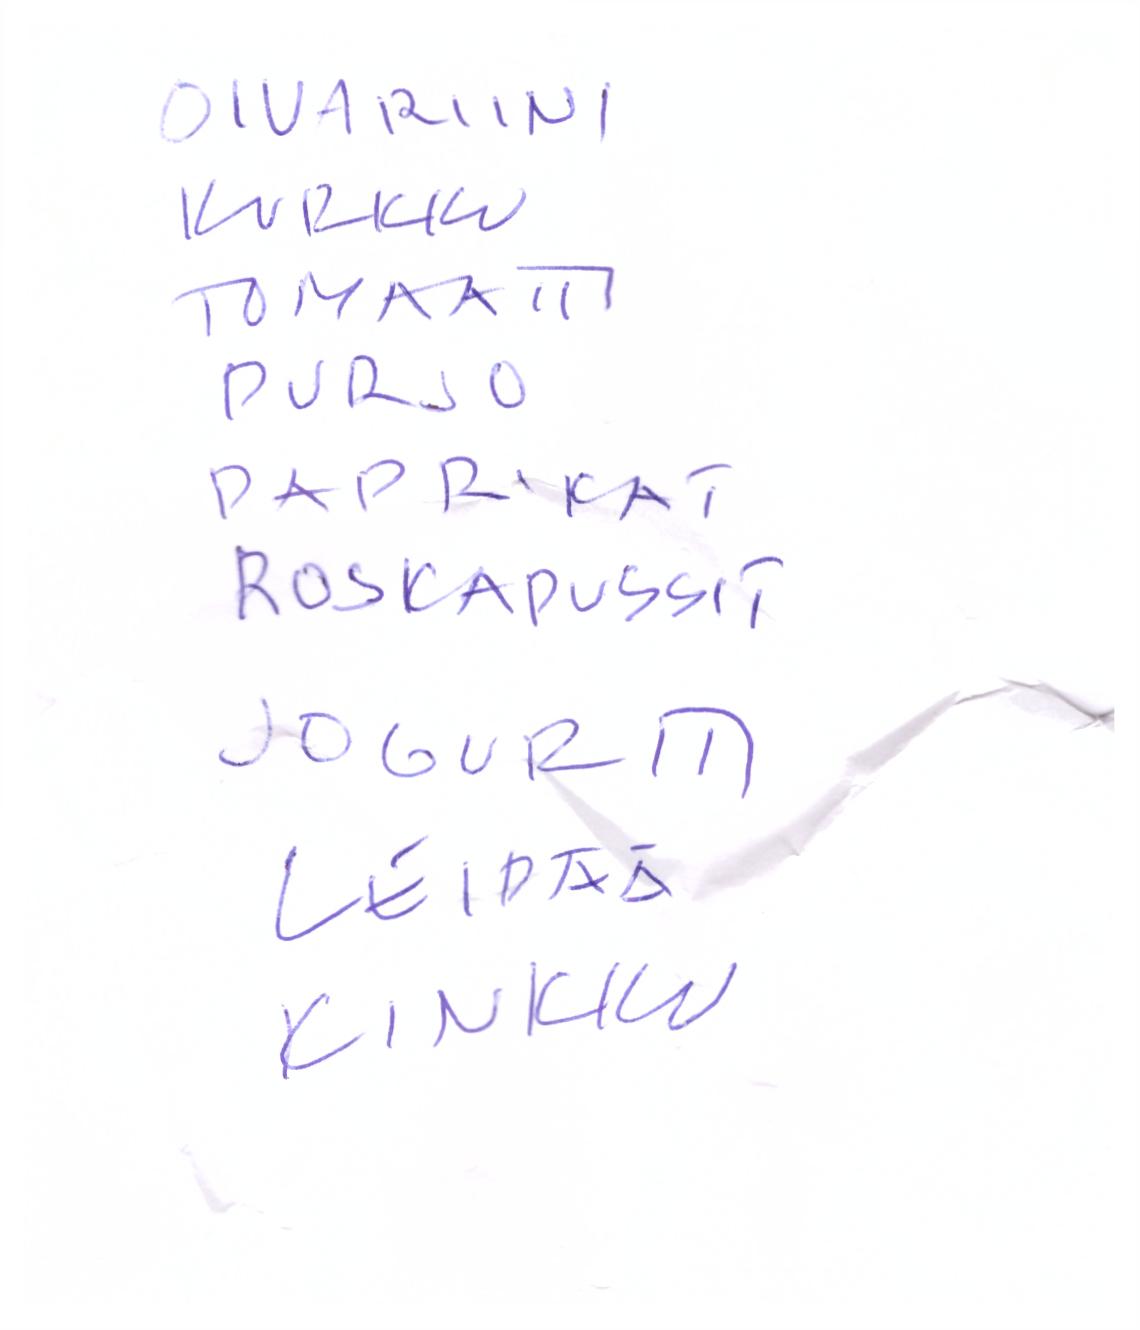 OIVARIINI
KURKKU
TOMAATTI
PURJO
PAPRIKAT
ROSKAPUSSIT
JOGURTTI
LEIPÄÄ
KINKKU